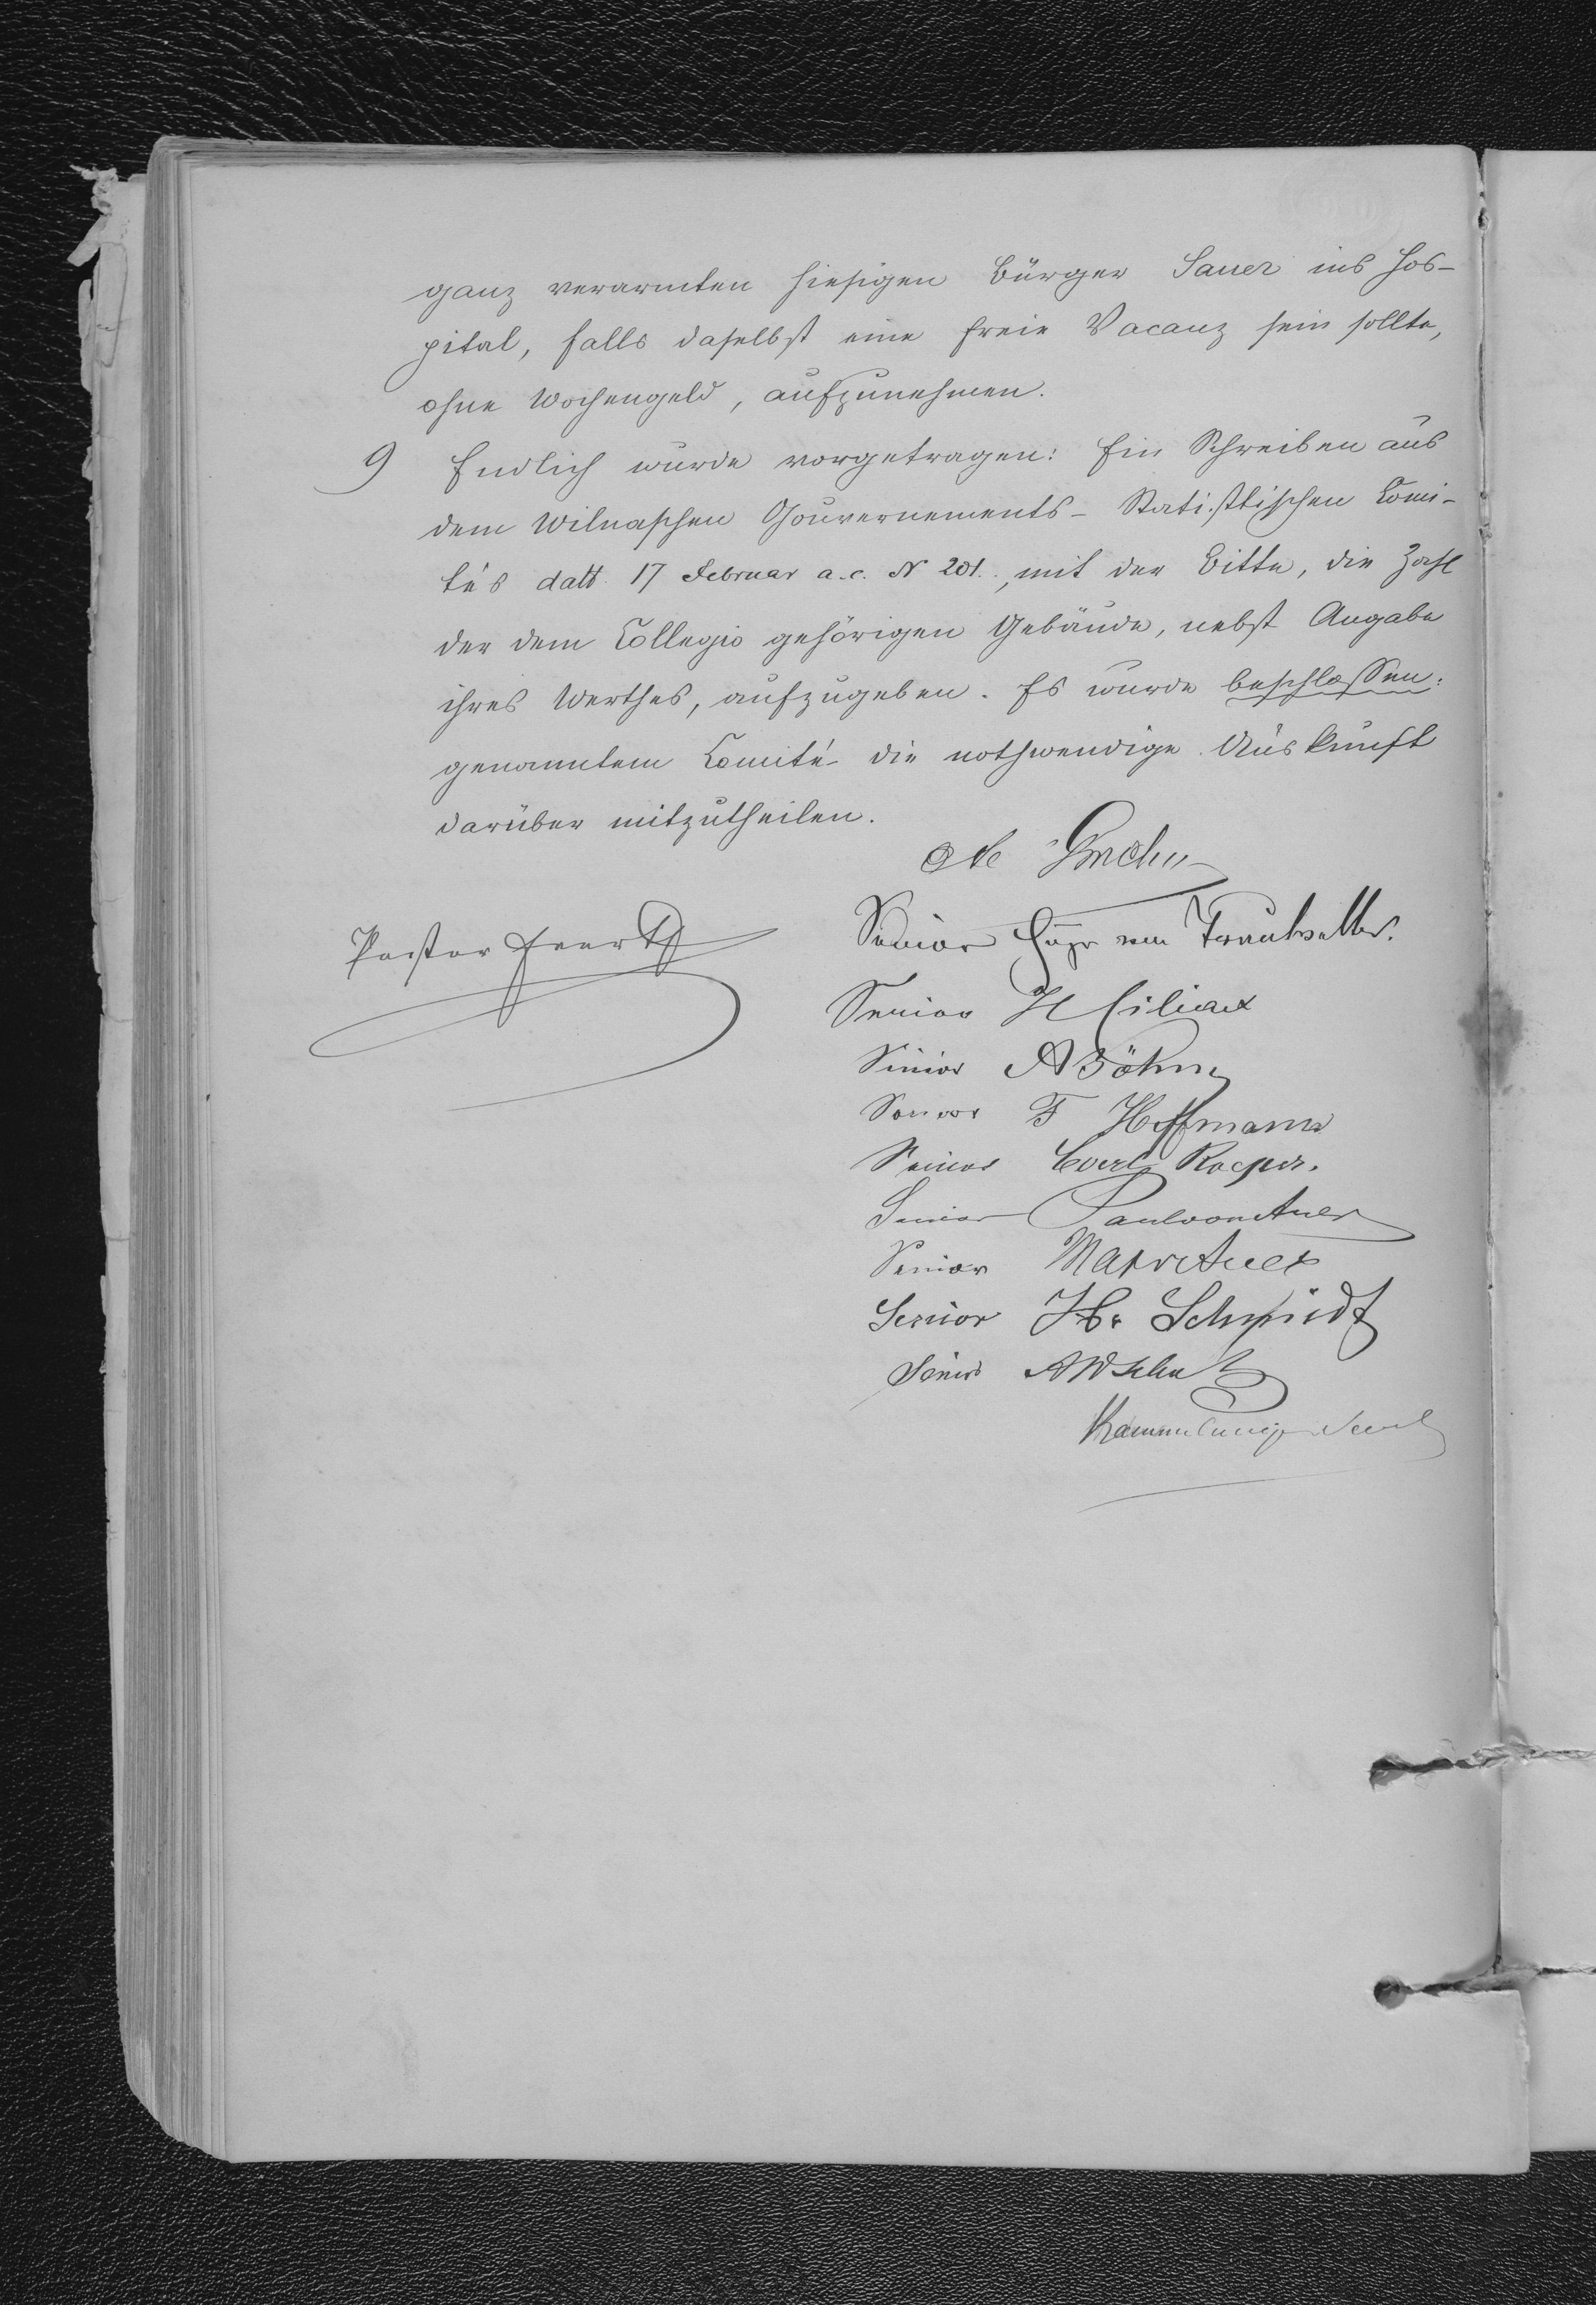 ganz verarmten hiesigen Bürger Sauer ins Hos-
pital, falls daselbst eine freie Vacanz sein sollte,
ohne Wochengeld, aufzunehmen.
9 Endlich wurde vorgetragen: Ein Schreiben aus
dem Wilnaschen Gouvernements-Statistischen Comi-
té's datt. 17 Februar a.c. N 201., mit der Bitte, die Zahl
der dem Collegio gehörigen Gebäude, nebst Angabe
ihres Werthes, aufzugeben. Es wurde beschlossen:
genanntem Comité die nothwendige Auskunft
darüber mitzutheilen.
Pastor
Senior von Trautvetter.
Senior H Ciliax
Senior A Böhm
Senior F Hoffmann
Senior Carl Roeper.
Senior
Senior
Senior Schmidt
Senior